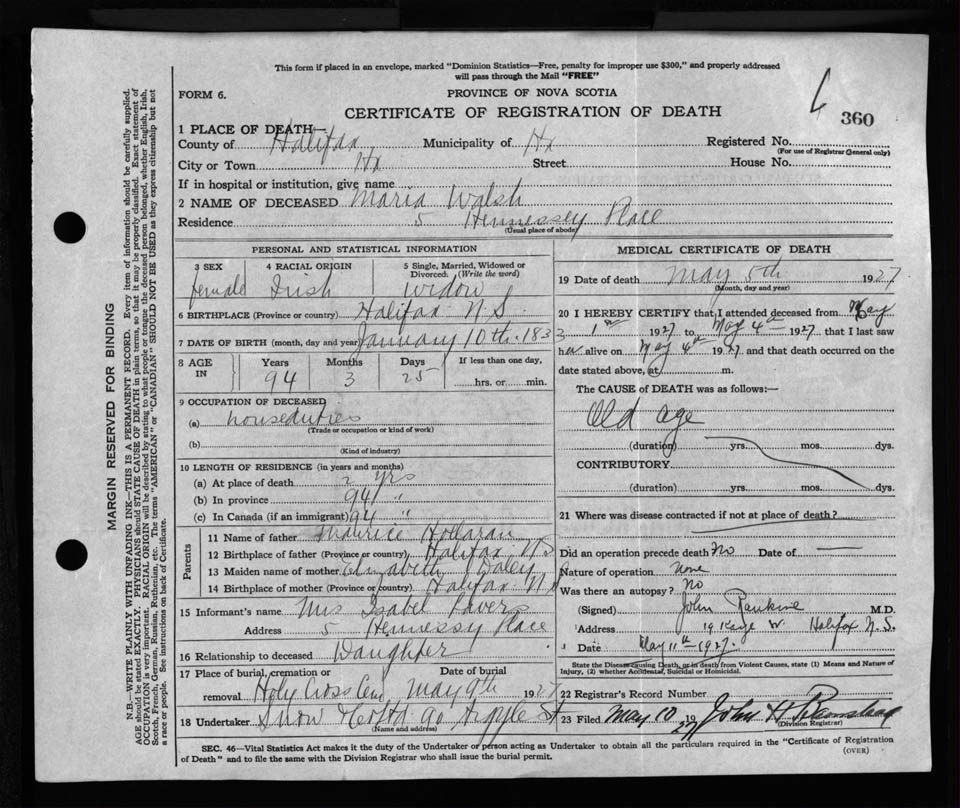 This form if placed in an envelope, marked "Dominion Statistics—Free, penalty for improper use $300," and properly addressed
will pass through the Mail "FREE"
FORM 6.
PROVINCE OF NOVA SCOTIA
CERTIFICATE OF REGISTRATION OF DEATH
360
1 PLACE OF DEATH—
County of Halifax Municipality of Hx Registered No.
(For use of Registrar General only)
City or Town Hx Street House No.
If in hospital or institution, give name
2 NAME OF DECEASED Maria Walsh
Residence 5 Hennessey Place
(Usual place of abode)
PERSONAL AND STATISTICAL INFORMATION
3 SEX 4 RACIAL ORIGIN 5 Single, Married, Widowed or Divorced. (Write the word)
female Irish widow
6 BIRTHPLACE (Province or country) Halifax N.S.
7 DATE OF BIRTH (month, day and year) January 10th. 1833
8 AGE IN Years Months Days If less than one day,
94 3 25 hrs. or min.
9 OCCUPATION OF DECEASED
(a) houseduties
(Trade or occupation or kind of work)
(b)
(Kind of industry)
10 LENGTH OF RESIDENCE (in years and months)
(a) At place of death 2 yrs
(b) In province 94 "
(c) In Canada (if an immigrant) 94 "
Parents
11 Name of father Maurice Hollaran
12 Birthplace of father (Province or country) Halifax N S
13 Maiden name of mother Elizabeth Daley
14 Birthplace of mother (Province or country) Halifax N S
15 Informant's name Mrs Isabel Pavers
Address 5 Hennessy Place
16 Relationship to deceased Daughter
17 Place of burial, cremation or removal Date of burial
Holy Cross Cem May 9th 1927
18 Undertaker Snow & Co Ltd 90 Argyle St
(Name and address)
MEDICAL CERTIFICATE OF DEATH
19 Date of death May 5th 1927
(Month, day and year)
20 I HEREBY CERTIFY that I attended deceased from May
1st 1927 to May 4th 1927 that I last saw
her alive on May 4th 1927 and that death occurred on the
date stated above, at m.
The CAUSE of DEATH was as follows:—
Old age
(duration) yrs. mos. dys.
CONTRIBUTORY
(duration) yrs. mos. dys.
21 Where was disease contracted if not at place of death?
Did an operation precede death? No Date of —
Nature of operation None
Was there an autopsy? No
(Signed) John Rankine M.D.
Address 19 Kaye St Halifax N.S.
Date May 11th 1927.
State the Disease causing Death, or in death from Violent Causes, state (1) Means and Nature of
Injury, (2) whether Accidental, Suicidal or Homicidal.
22 Registrar's Record Number
23 Filed May 10 1927 John H
(Division Registrar)
SEC. 46—Vital Statistics Act makes it the duty of the Undertaker or person acting as Undertaker to obtain all the particulars required in the "Certificate of Registration
of Death" and to file the same with the Division Registrar who shall issue the burial permit.
(OVER)
MARGIN RESERVED FOR BINDING
N.B.—WRITE PLAINLY WITH UNFADING INK—THIS IS A PERMANENT RECORD. Every item of information should be carefully supplied.
AGE should be stated EXACTLY. PHYSICIANS should STATE CAUSE OF DEATH in plain terms, so that it may be properly classified. Exact statement of
OCCUPATION is very important. RACIAL ORIGIN will be described by stating to what people or tongue the deceased person belonged, whether English, Irish,
Scotch, French, German, Russian, Ruthenian, etc. The terms "AMERICAN" or "CANADIAN" SHOULD NOT BE USED as they express citizenship but not
a race or people. See instructions on back of Certificate.